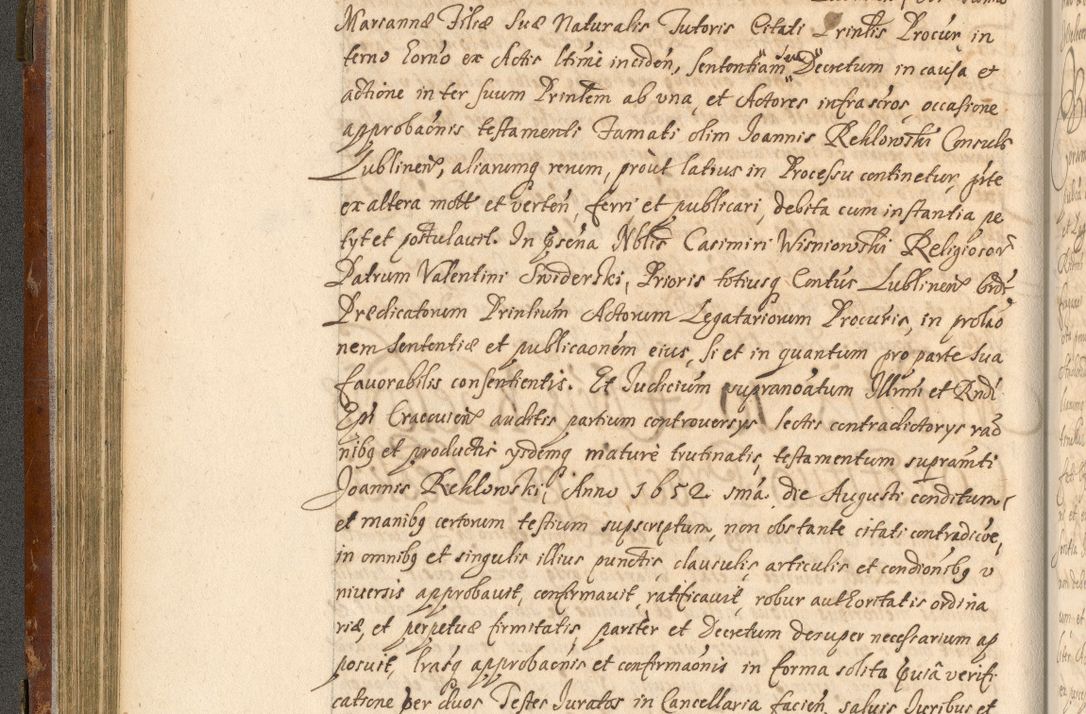 Mariannæ Filiæ Suæ Naturalis Tutoris Citati Prinlis Procur in
terno Eorno ex Actis ltimé inciden, Sententiam seu Decretum in causa et
actione inter suum Prinlem ab vna, et Actores infrascros, occasione
approbaonis testamenti Famati olim Joannis Rehlowski Consulis
Lublinen, aliarumq rerum, prout latius in Processu continetur, pte
ex altera mott et verten, ferri et publicari, debita cum instantia pe
tyt et postulavit. In psena Nblis Casimiri Wisniowski Religiosor
Patrum Valentini Swiderski, Prioris totiusq Contus Lublinen Ord
Prædicatorum Prinlium Actorum Legatariorum Procuris, in prolao
nem Sententiæ et publicaonem eius, si et in quantum pro parte sua
favorabilis consentientis. Et Judicium supranoatum Illrmi et Rndi
Epi Cracovien auditis partium controversys lectis contradictorys rao
nibq et productis ysdemq maturè trutinatis, testamentum supramti
Joannis Rehlowski, Anno 1652. sma. die Augusti conditum,
et manibq certorum testium supscreptum, non obstante citati contradicoe,
in omnibq et singulis illius punctis, clausulis, articulis et condionibq v
niversis approbavit, confirmavit, ratificavit, robur authoritatis ordina
riæ, et perpetuæ firmitatis, pariter et Decretum desuper necessarium ap
posuit, lrasq approbaonis et confirmaonis in forma solita pviâ verifi
catione per duos Testes Juratos in Cancellaria facien, salvis Juribus et